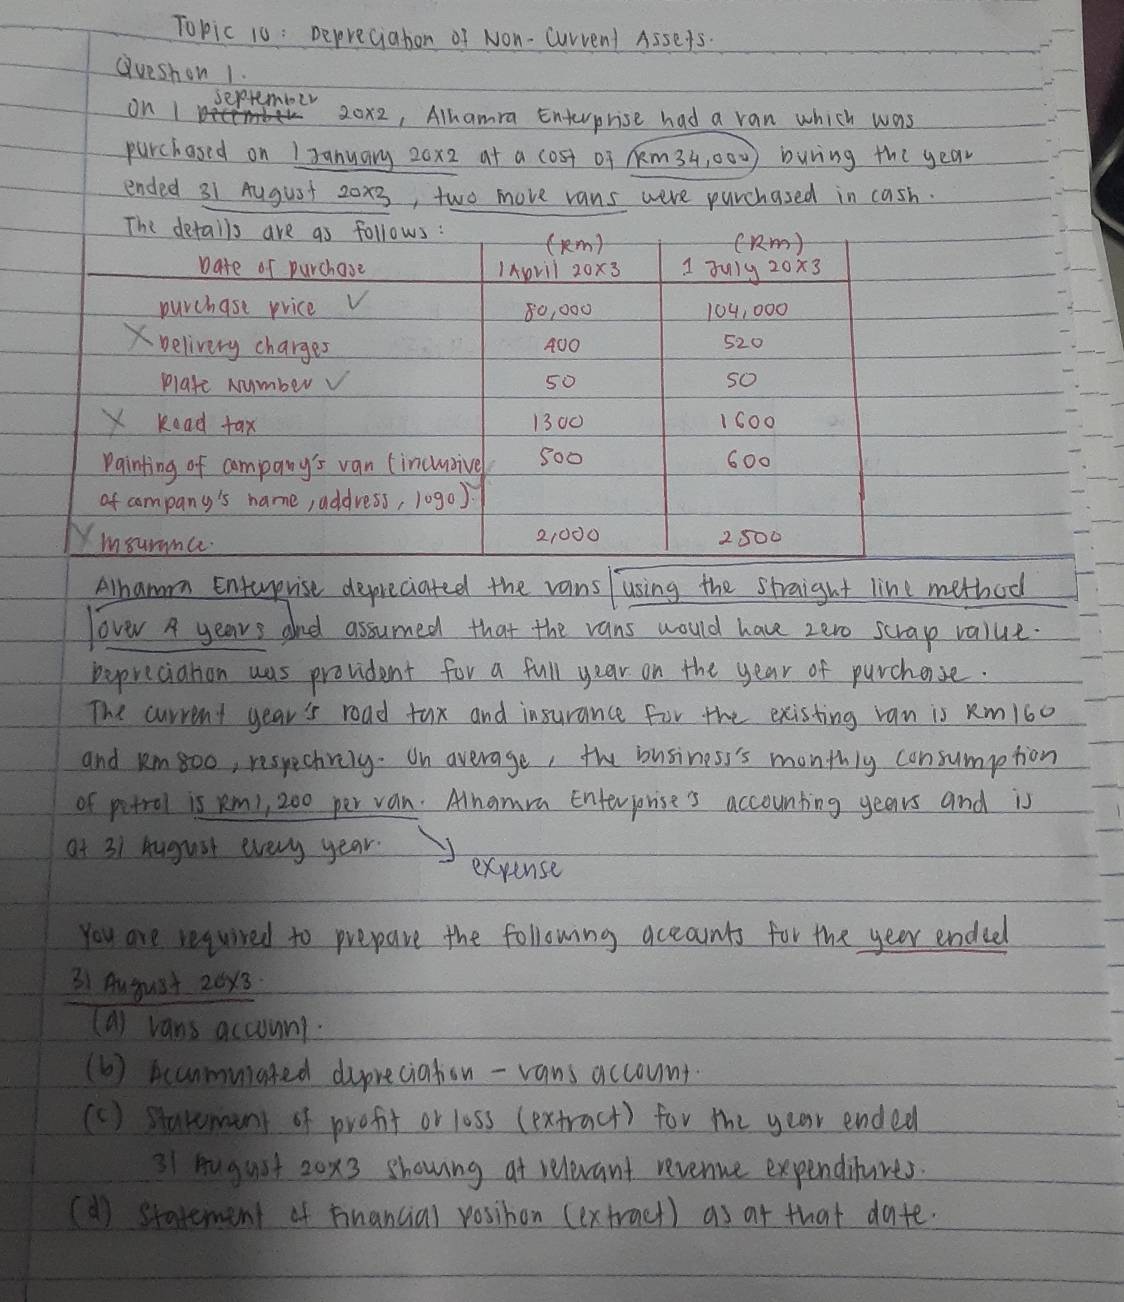 Topic 10 : Depreciation of Non-Current Assets.
Question 1.
September
on 1 December 20x2, Alhamra Enterprise had a van which was
purchased on 1 January 20x2 at a cost of RM34,000 During the year
ended 31 August 20x3, two more vans were purchased in cash.
The details are as follows:
(RM) (RM)
Date of purchase 1 April 20x3 1 July 20x3
purchase price ✓ 80,000 104,000
X Delivery charges 400 520
Plate Number ✓ 50 50
X Road tax 1300 1600
Painting of company's van (inclusive 500 600
of company's name, address, logo).
X Insurance. 2,000 2500
Alhamra Enterprise depreciated the vans using the straight line method
over 4 years and assumed that the vans would have zero scrap value.
Depreciation was provident for a full year on the year of purchase.
The current year's road tax and insurance for the existing van is RM160
and RM800, respectively. On average, the business's monthly consumption
of petrol is RM1,200 per van. Alhamra Enterprise's accounting years and is
at 31 August every year.
expense
You are required to prepare the following accounts for the year ended
31 August 20x3.
(a) Vans account.
(b) Accumulated depreciation - vans account.
(c) Statement of profit or loss (extract) for the year ended
31 August 20x3 showing at relevant revenue expenditures.
(d) Statement of Financial Position (extract) as at that date.